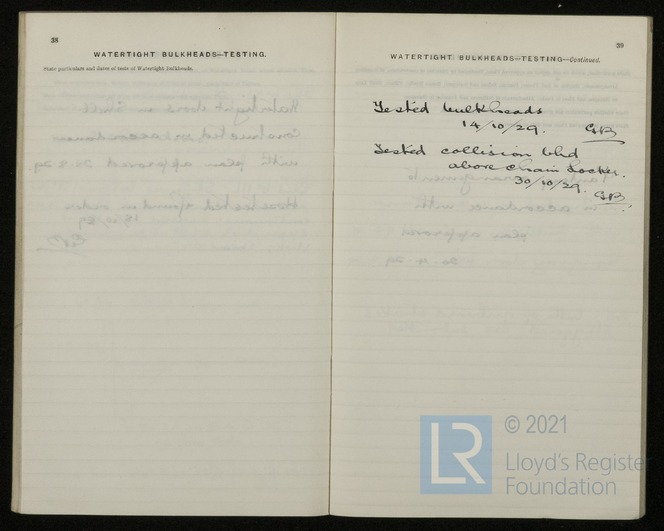 38
WATERTIGHT BULKHEADS—TESTING.
State particulars and dates of tests of Watertight Bulkheads.
39
WATERTIGHT BULKHEADS—TESTING—Continued.
Tested bulkheads
14/10/29. GB
Tested collision bhd
above chain Locker.
30/10/29. GB
LR
© 2021
Lloyd's Register
Foundation